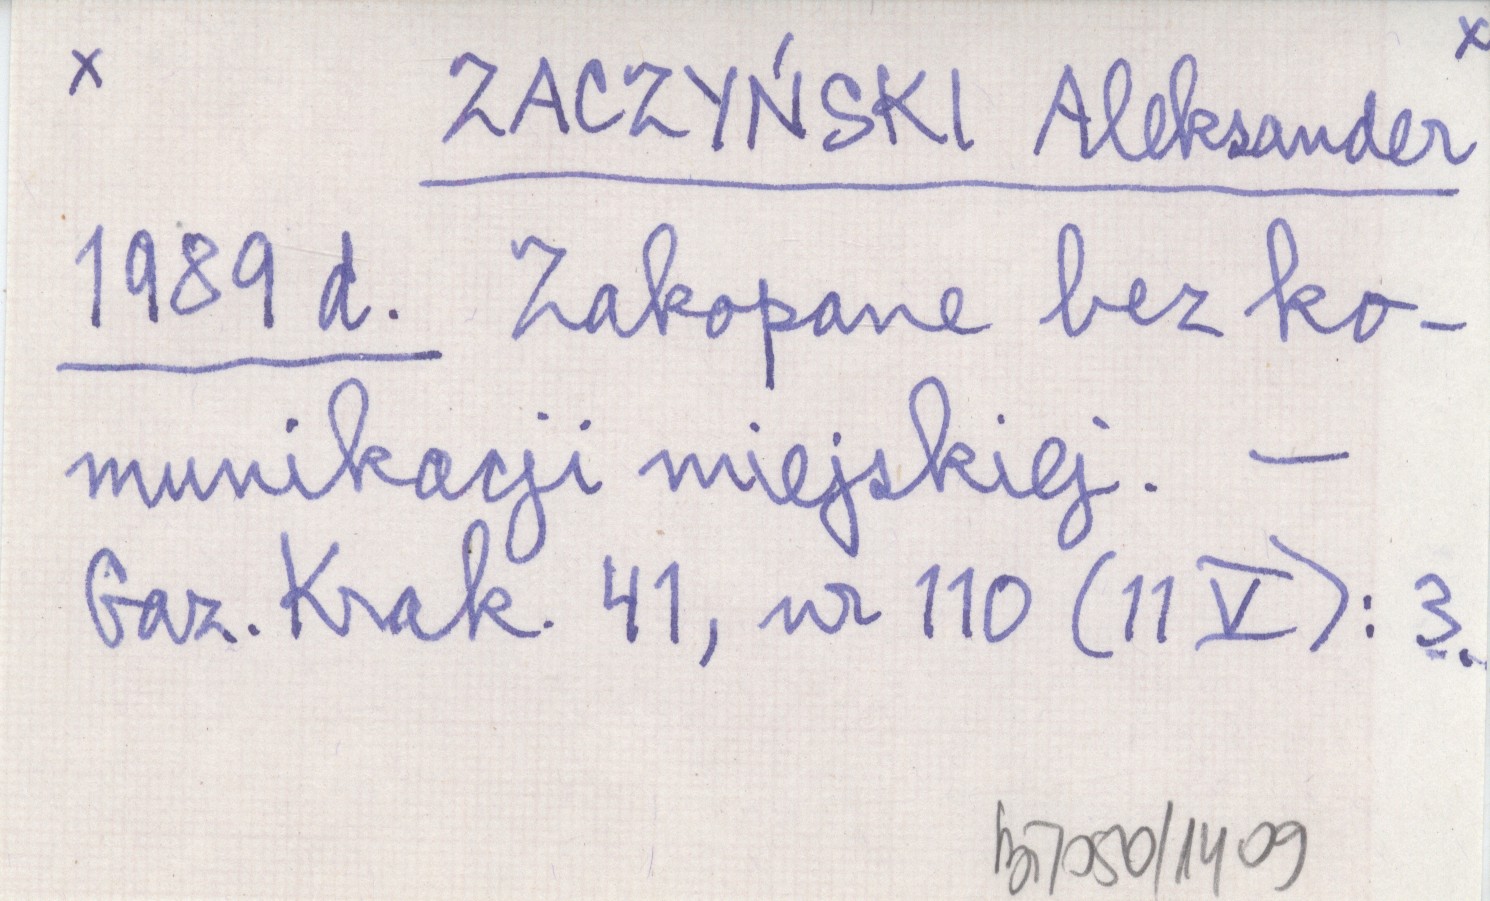 x x
ZACZYŃSKI Aleksander
1989 d. Zakopane bez ko-
munikacji miejskiej. —
Gaz. Krak. 41, nr 110 (11 V): 3.